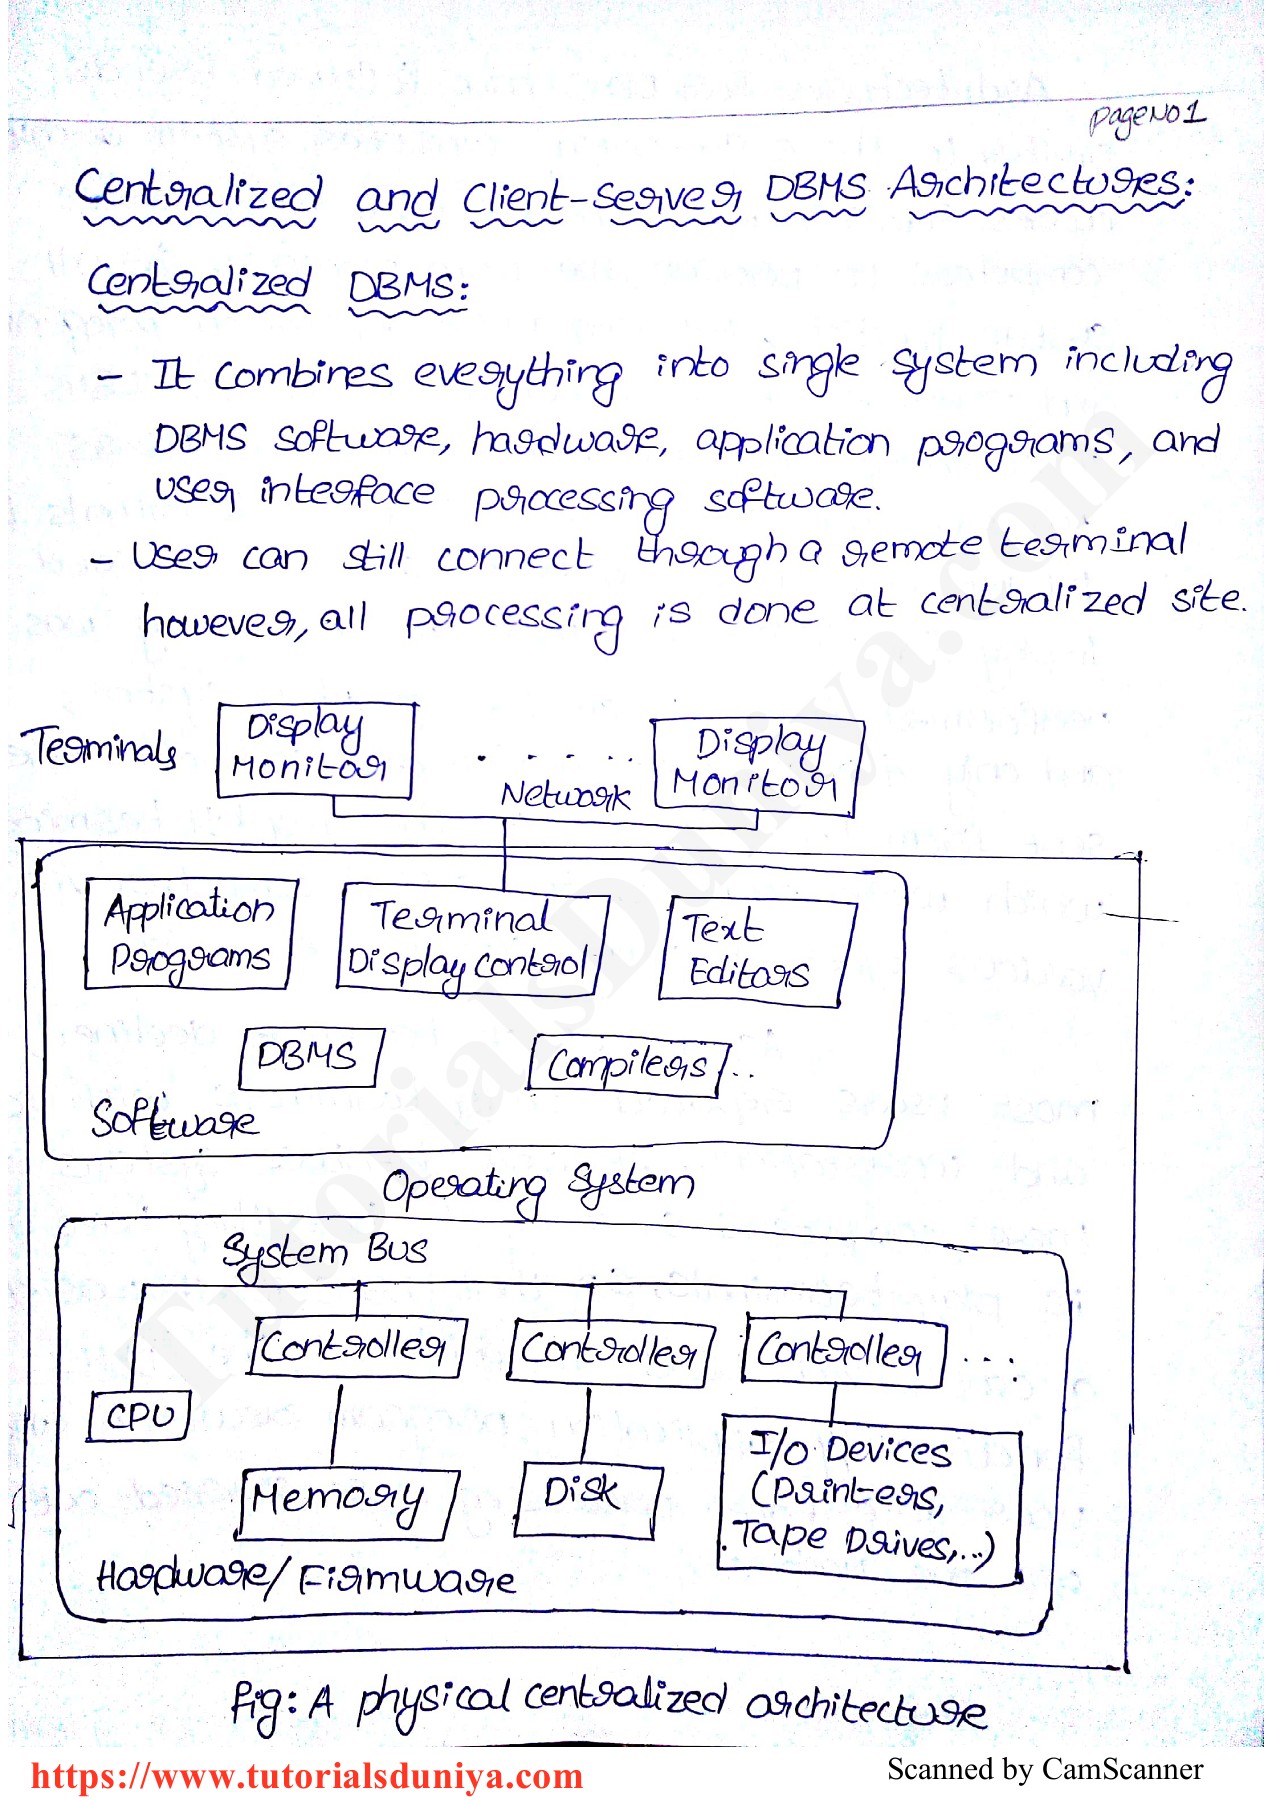 Page No 1
Centralized and Client-Server DBMS Architectures:
Centralized DBMS:
- It combines everything into single system including
DBMS software, hardware, application programs, and
user interface processing software.
- User can still connect through a remote terminal
however, all processing is done at centralized site.
Terminals
Display
Monitor
. . . . . .
Display
Monitor
Network
Application
Programs
Terminal
Display Control
Text
Editors
DBMS
Compilers
...
Software
Operating System
System Bus
Controller
Controller
Controller
....
CPU
Memory
Disk
I/O Devices
(Printers,
Tape Drives,...)
Hardware/Firmware
Fig: A physical centralized architecture
TutorialsDuniya.com
https://www.tutorialsduniya.com
Scanned by CamScanner